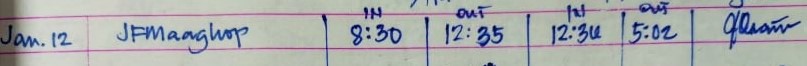 IN OUT IN OUT
Jan. 12 JFMaaghop 8:30 12:35 12:36 5:02